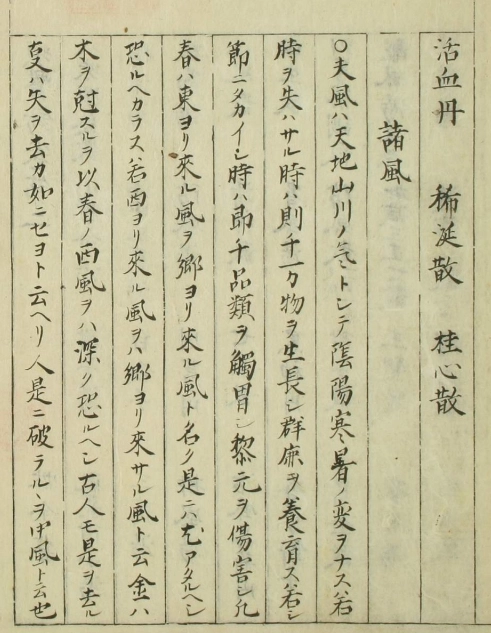 活血丹　稀涎散　桂心散
諸風
○夫風ハ天地山川ノ氣ニトシテ陰陽寒暑ノ変ヲナス若
時ヲ失ハサル時ハ則千万物ヲ生長シ群廉ヲ養育ス若シ
節ニタカイシ時ハ即千品類ヲ觸冒シ黎元ヲ傷害シ凡
春ハ東ヨリ來ル風ヲ郷ヨリ來ル風ト名ク是ニハアタルヘシ
恐ルヘカラス若西ヨリ來ル風ヲハ郷ヨリ來サル風ト云金ハ
木ヲ尅スルヲ以春ノ西風ヲハ深ク恐ルヘシ古人モ是ヲ去ル
ハ矢ヲ去カ如ニセヨト云ヘリ人是ニ破ラルヽヲ中風ト云也